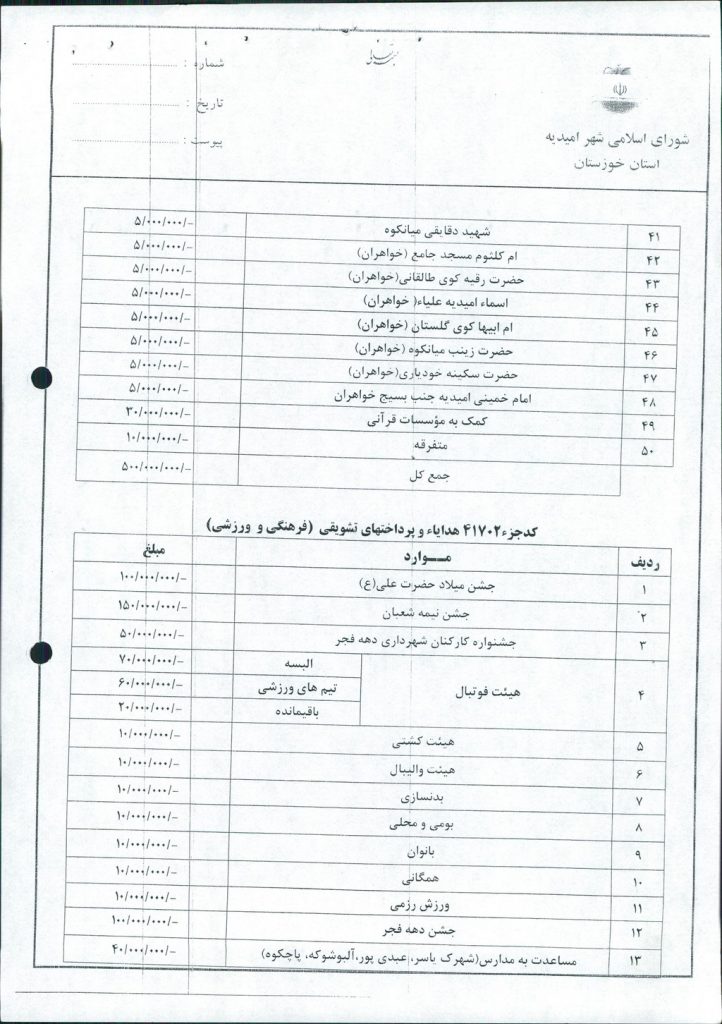 بسمه تعالی
شماره :
تاریخ :
پیوست :
شورای اسلامی شهر امیدیه
استان خوزستان
۴۱ شهید دقایقی میانکوه ۵/۰۰۰/۰۰۰/-
۴۲ ام کلثوم مسجد جامع (خواهران) ۵/۰۰۰/۰۰۰/-
۴۳ حضرت رقیه کوی طالقانی(خواهران) ۵/۰۰۰/۰۰۰/-
۴۴ اسماء امیدیه علیاء( خواهران) ۵/۰۰۰/۰۰۰/-
۴۵ ام ابیها کوی گلستان (خواهران) ۵/۰۰۰/۰۰۰/-
۴۶ حضرت زینب میانکوه (خواهران) ۵/۰۰۰/۰۰۰/-
۴۷ حضرت سکینه خودیاری(خواهران) ۵/۰۰۰/۰۰۰/-
۴۸ امام خمینی امیدیه جنب بسیج خواهران ۵/۰۰۰/۰۰۰/-
۴۹ کمک به مؤسسات قرآنی ۳۰/۰۰۰/۰۰۰/-
۵۰ متفرقه ۱۰/۰۰۰/۰۰۰/-
جمع کل ۵۰۰/۰۰۰/۰۰۰/-
کدجزء۴۱۷۰۲ هدایاء و پرداختهای تشویقی (فرهنگی و ورزشی)
ردیف مــوارد مبلغ
۱ جشن میلاد حضرت علی(ع) ۱۰۰/۰۰۰/۰۰۰/-
۲ جشن نیمه شعبان ۱۵۰/۰۰۰/۰۰۰/-
۳ جشنواره کارکنان شهرداری دهه فجر ۵۰/۰۰۰/۰۰۰/-
۴ هیئت فوتبال البسه ۷۰/۰۰۰/۰۰۰/-
تیم های ورزشی ۶۰/۰۰۰/۰۰۰/-
باقیمانده ۲۰/۰۰۰/۰۰۰/-
۵ هیئت کشتی ۱۰/۰۰۰/۰۰۰/-
۶ هیئت والیبال ۱۰/۰۰۰/۰۰۰/-
۷ بدنسازی ۱۰/۰۰۰/۰۰۰/-
۸ بومی و محلی ۱۰/۰۰۰/۰۰۰/-
۹ بانوان ۱۰/۰۰۰/۰۰۰/-
۱۰ همگانی ۱۰/۰۰۰/۰۰۰/-
۱۱ ورزش رزمی ۱۰/۰۰۰/۰۰۰/-
۱۲ جشن دهه فجر ۱۰۰/۰۰۰/۰۰۰/-
۱۳ مساعدت به مدارس(شهرک یاسر، عبدی پور،آلبوشوکه، پاچکوه) ۴۰/۰۰۰/۰۰۰/-